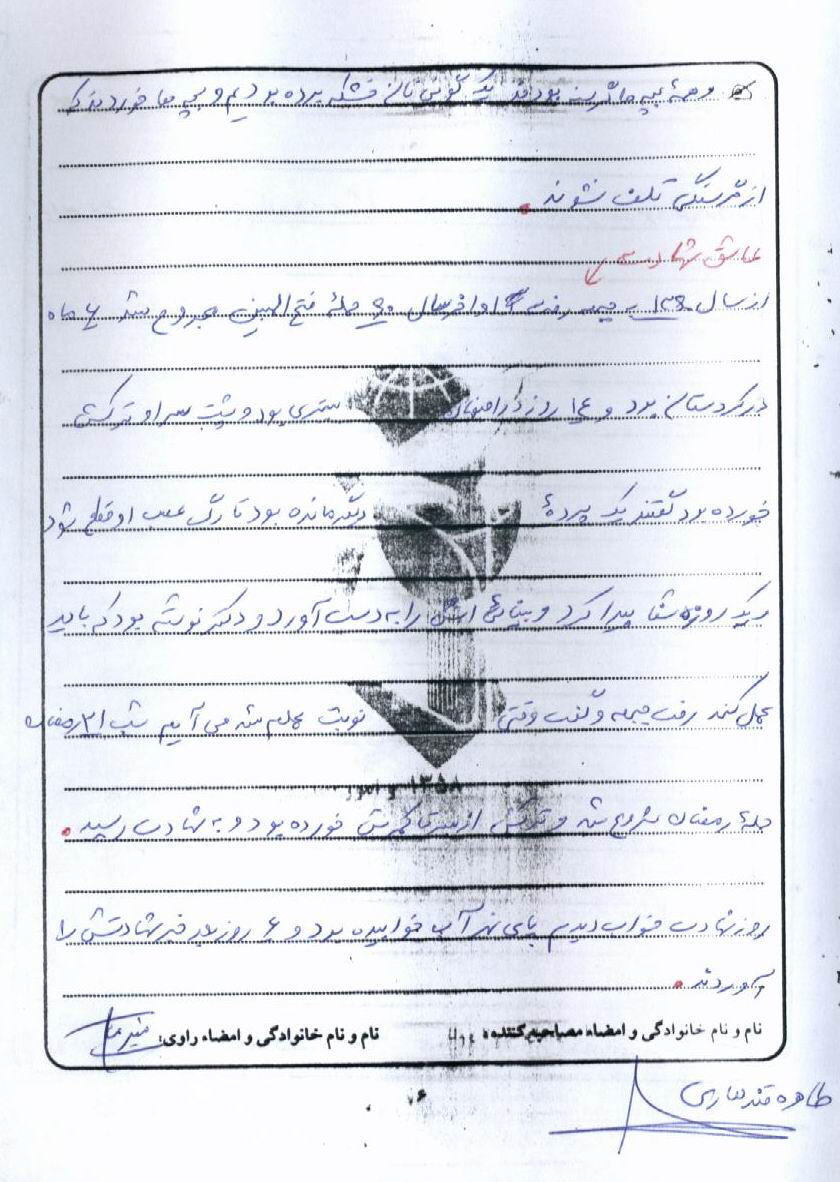 و همهٔ بچه ها گرسنه بودند یک گونی نان خشک برده بودیم و بچه ها خوردند که
از گرسنگی تلف نشوند.
عاشق شهادت
از سال ۱۳۶۰ به جبهه رفت اواخر سال ۶۰ حملهٔ فتح المبین مجروح شد ۶ ماه
در کردستان بود و ۱۶ روز در اصفهان بستری بود و پشت سر او ترکش
خورده بود گفتند یک پردهٔ دیگر مانده بود تا رگ عصب او قطع شود
و یک روزه شفا پیدا کرد و بینائی اش را به دست آورد و دکتر نوشته بود که باید
عمل کند رفت جبهه و گفت وقتی نوبت عملم شد می آیم شب ۲۱ رمضان
حملهٔ رمضان شروع شد و ترکش از کمرش خورده بود و به شهادت رسید.
روز شهادت خواب دیدم پای نهر آب خوابیده بود و ۶ روز بعد خبر شهادتش را
آوردند.
نام و نام خانوادگی و امضاء مصاحبه کننده: نام و نام خانوادگی و امضاء راوی:
طاهره قندهاری
۱۳۵۸
۶